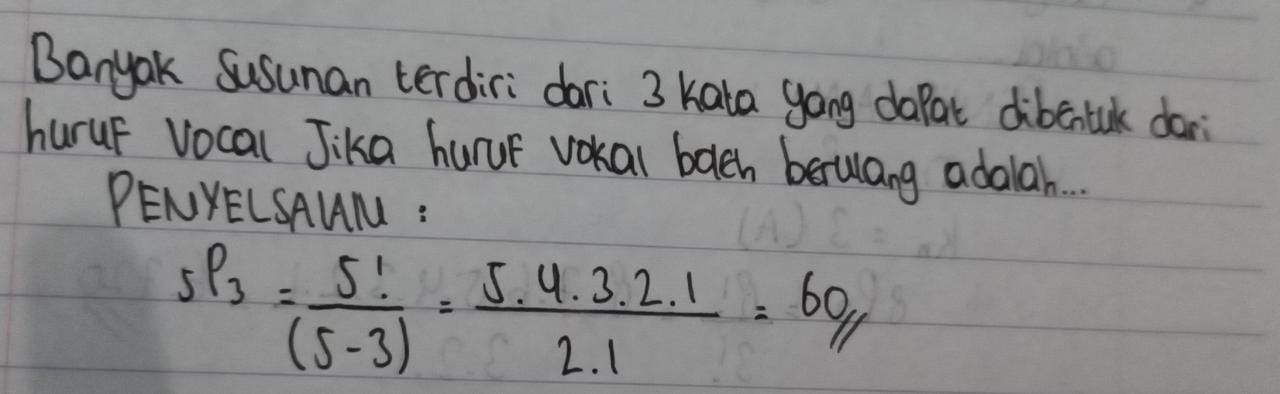 Banyak susunan terdiri dari 3 kata yang dapat dibentuk dari
huruf vocal Jika huruf vokal boleh berulang adalah...
PENYELSAIAN :
5P3 = 5! / (5-3) = 5.4.3.2.1 / 2.1 = 60//